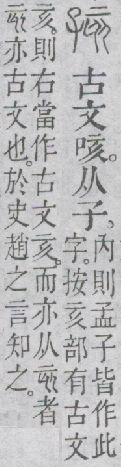 古文咳。从子、
內則孟子皆作此
字。按亥部有古文
亥。則右當作古文亥。而亦从者
亦古文也。於史趙之言知之。